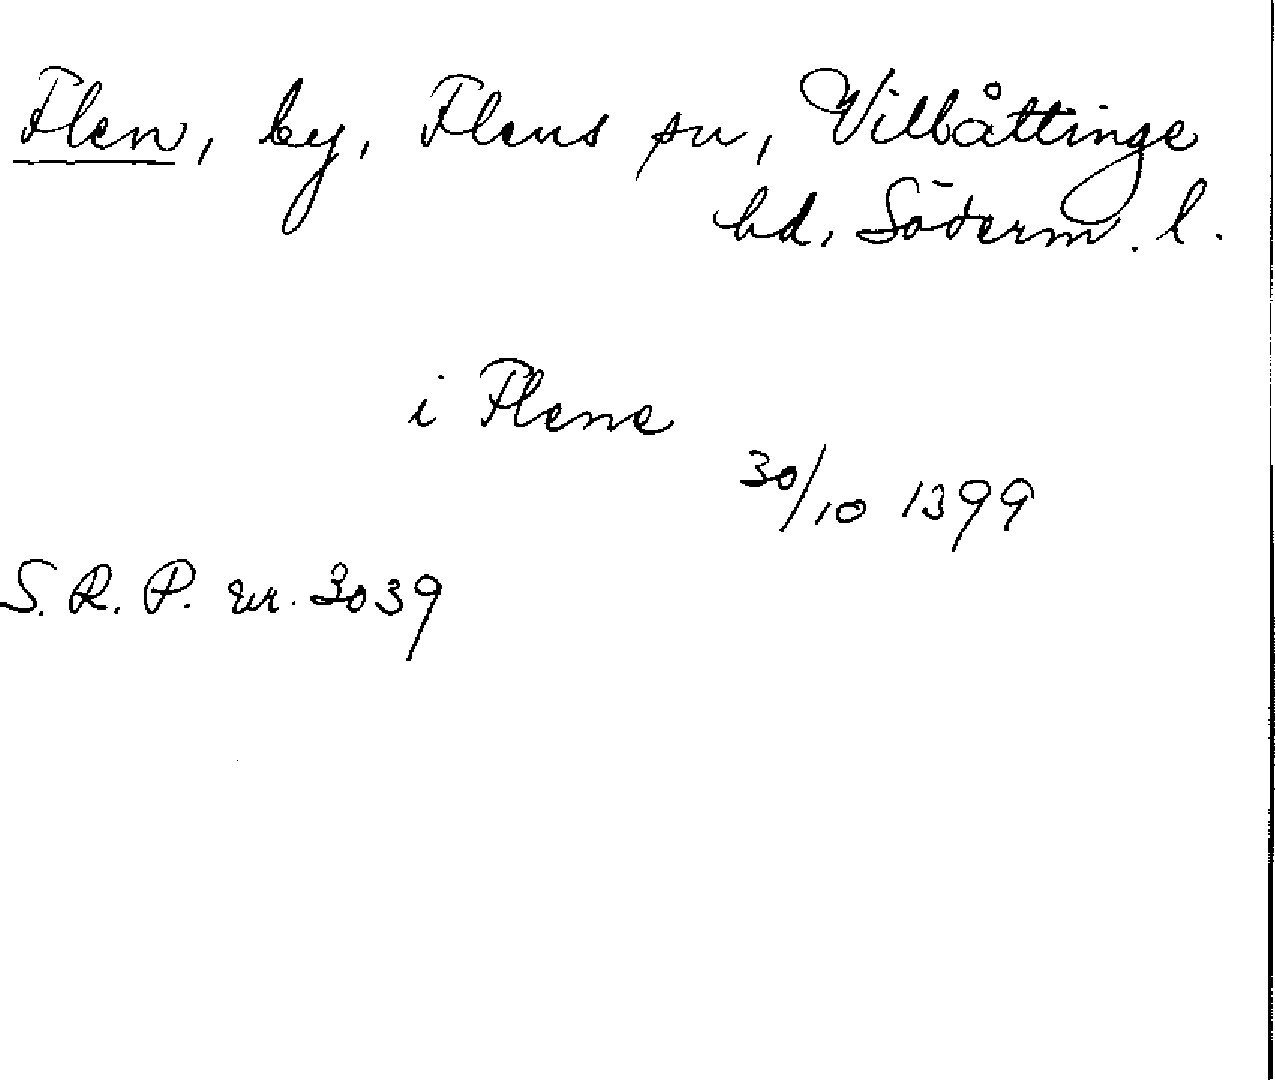 Flen, by, Flens sn, Villåttinge
hd, Söderm. l.
i Flene
30/10 1399
S. R. P. nr. 3039